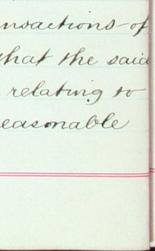 nsactions of
hat the said
relating to
easonable